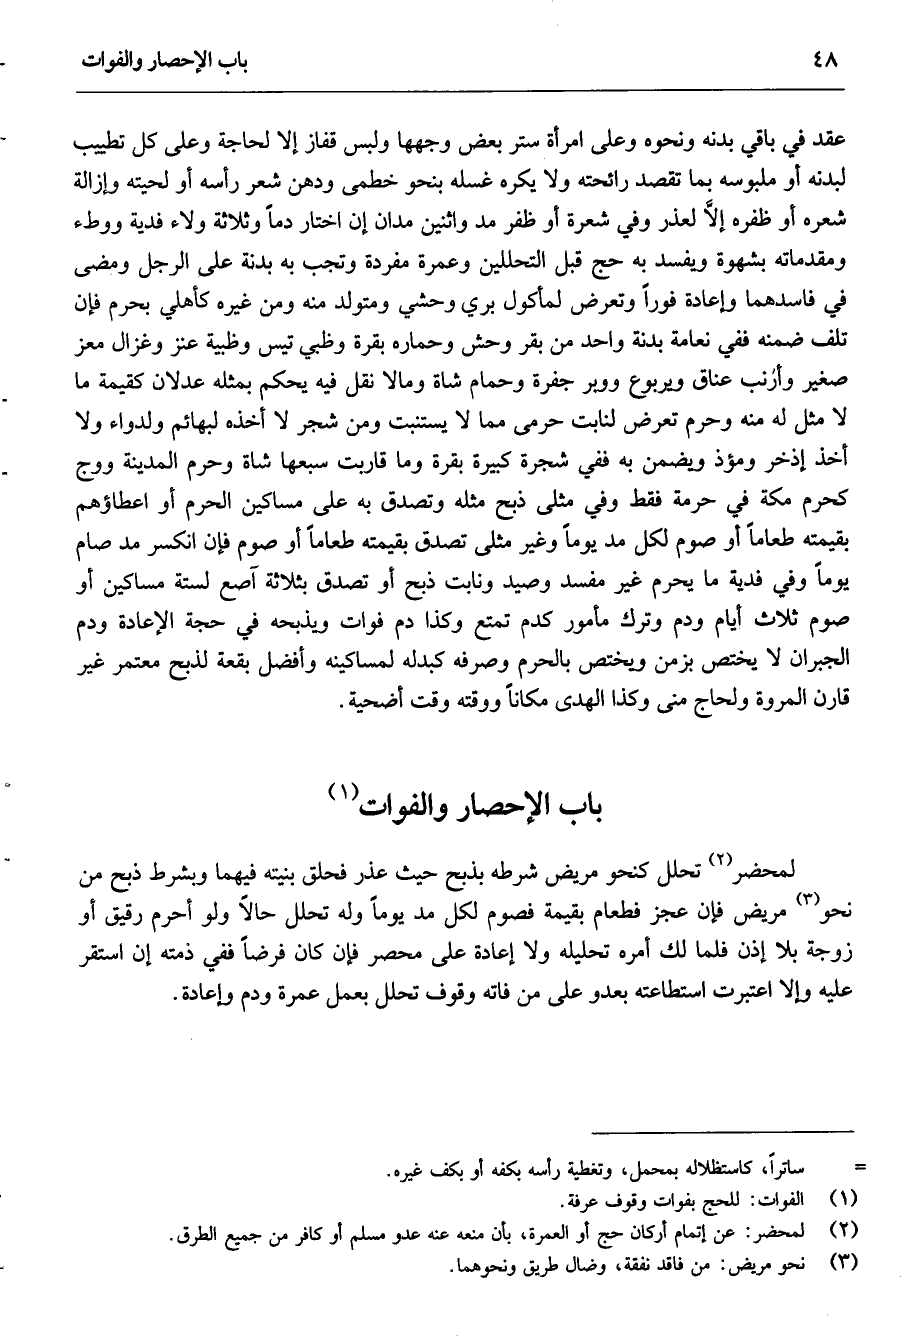 ٤٨ باب الإحصار والفوات
عقد في باقي بدنه ونحوه وعلى امرأة ستر بعض وجهها ولبس قفاز إلا لحاجة وعلى كل تطييب
لبدنه أو ملبوسه بما تقصد رائحته ولا يكره غسله بنحو خطمى ودهن شعر رأسه أو لحيته وإزالة
شعره أو ظفره إلَّا لعذر وفي شعرة أو ظفر مد واثنين مدان إن اختار دماً وثلاثة ولاء فدية ووطء
ومقدماته بشهوة ويفسد به حج قبل التحللين وعمرة مفردة وتجب به بدنة على الرجل ومضى
في فاسدهما وإعادة فوراً وتعرض لمأكول بري وحشي ومتولد منه ومن غيره كأهلي بحرم فإن
تلف ضمنه ففي نعامة بدنة واحد من بقر وحش وحماره بقرة وظبي تيس وظبية عنز وغزال معز
صغير وأرنب عناق ويربوع ووبر جفرة وحمام شاة ومالا نقل فيه يحكم بمثله عدلان كقيمة ما
لا مثل له منه وحرم تعرض لنابت حرمى مما لا يستنبت ومن شجر لا أخذه لبهائم ولدواء ولا
أخذ إذخر ومؤذ ويضمن به ففي شجرة كبيرة بقرة وما قاربت سبعها شاة وحرم المدينة ووج
كحرم مكة في حرمة فقط وفي مثلى ذبح مثله وتصدق به على مساكين الحرم أو اعطاؤهم
بقيمته طعاماً أو صوم لكل مد يوماً وغير مثلى تصدق بقيمته طعاماً أو صوم فإن انكسر مد صام
يوماً وفي فدية ما يحرم غير مفسد وصيد ونابت ذبح أو تصدق بثلاثة آصع لستة مساكين أو
صوم ثلاث أيام ودم وترك مأمور كدم تمتع وكذا دم فوات ويذبحه في حجة الإعادة ودم
الجبران لا يختص بزمن ويختص بالحرم وصرفه كبدله لمساكينه وأفضل بقعة لذبح معتمر غير
قارن المروة ولحاج منى وكذا الهدى مكاناً ووقته وقت أضحية.
باب الإحصار والفوات(١)
لمحضر(٢) تحلل كنحو مريض شرطه بذبح حيث عذر فحلق بنيته فيهما وبشرط ذبح من
نحو(٣) مريض فإن عجز فطعام بقيمة فصوم لكل مد يوماً وله تحلل حالاً ولو أحرم رقيق أو
زوجة بلا إذن فلما لك أمره تحليله ولا إعادة على محصر فإن كان فرضاً ففي ذمته إن استقر
عليه وإلا اعتبرت استطاعته بعدو على من فاته وقوف تحلل بعمل عمرة ودم وإعادة.
= ساتراً، كاستظلاله بمحمل، وتغطية رأسه بكفه أو بكف غيره.
(١) الفوات: للحج بفوات وقوف عرفة.
(٢) لمحضر: عن إتمام أركان حج أو العمرة، بأن منعه عنه عدو مسلم أو كافر من جميع الطرق.
(٣) نحو مريض: من فاقد نفقة، وضال طريق ونحوهما.